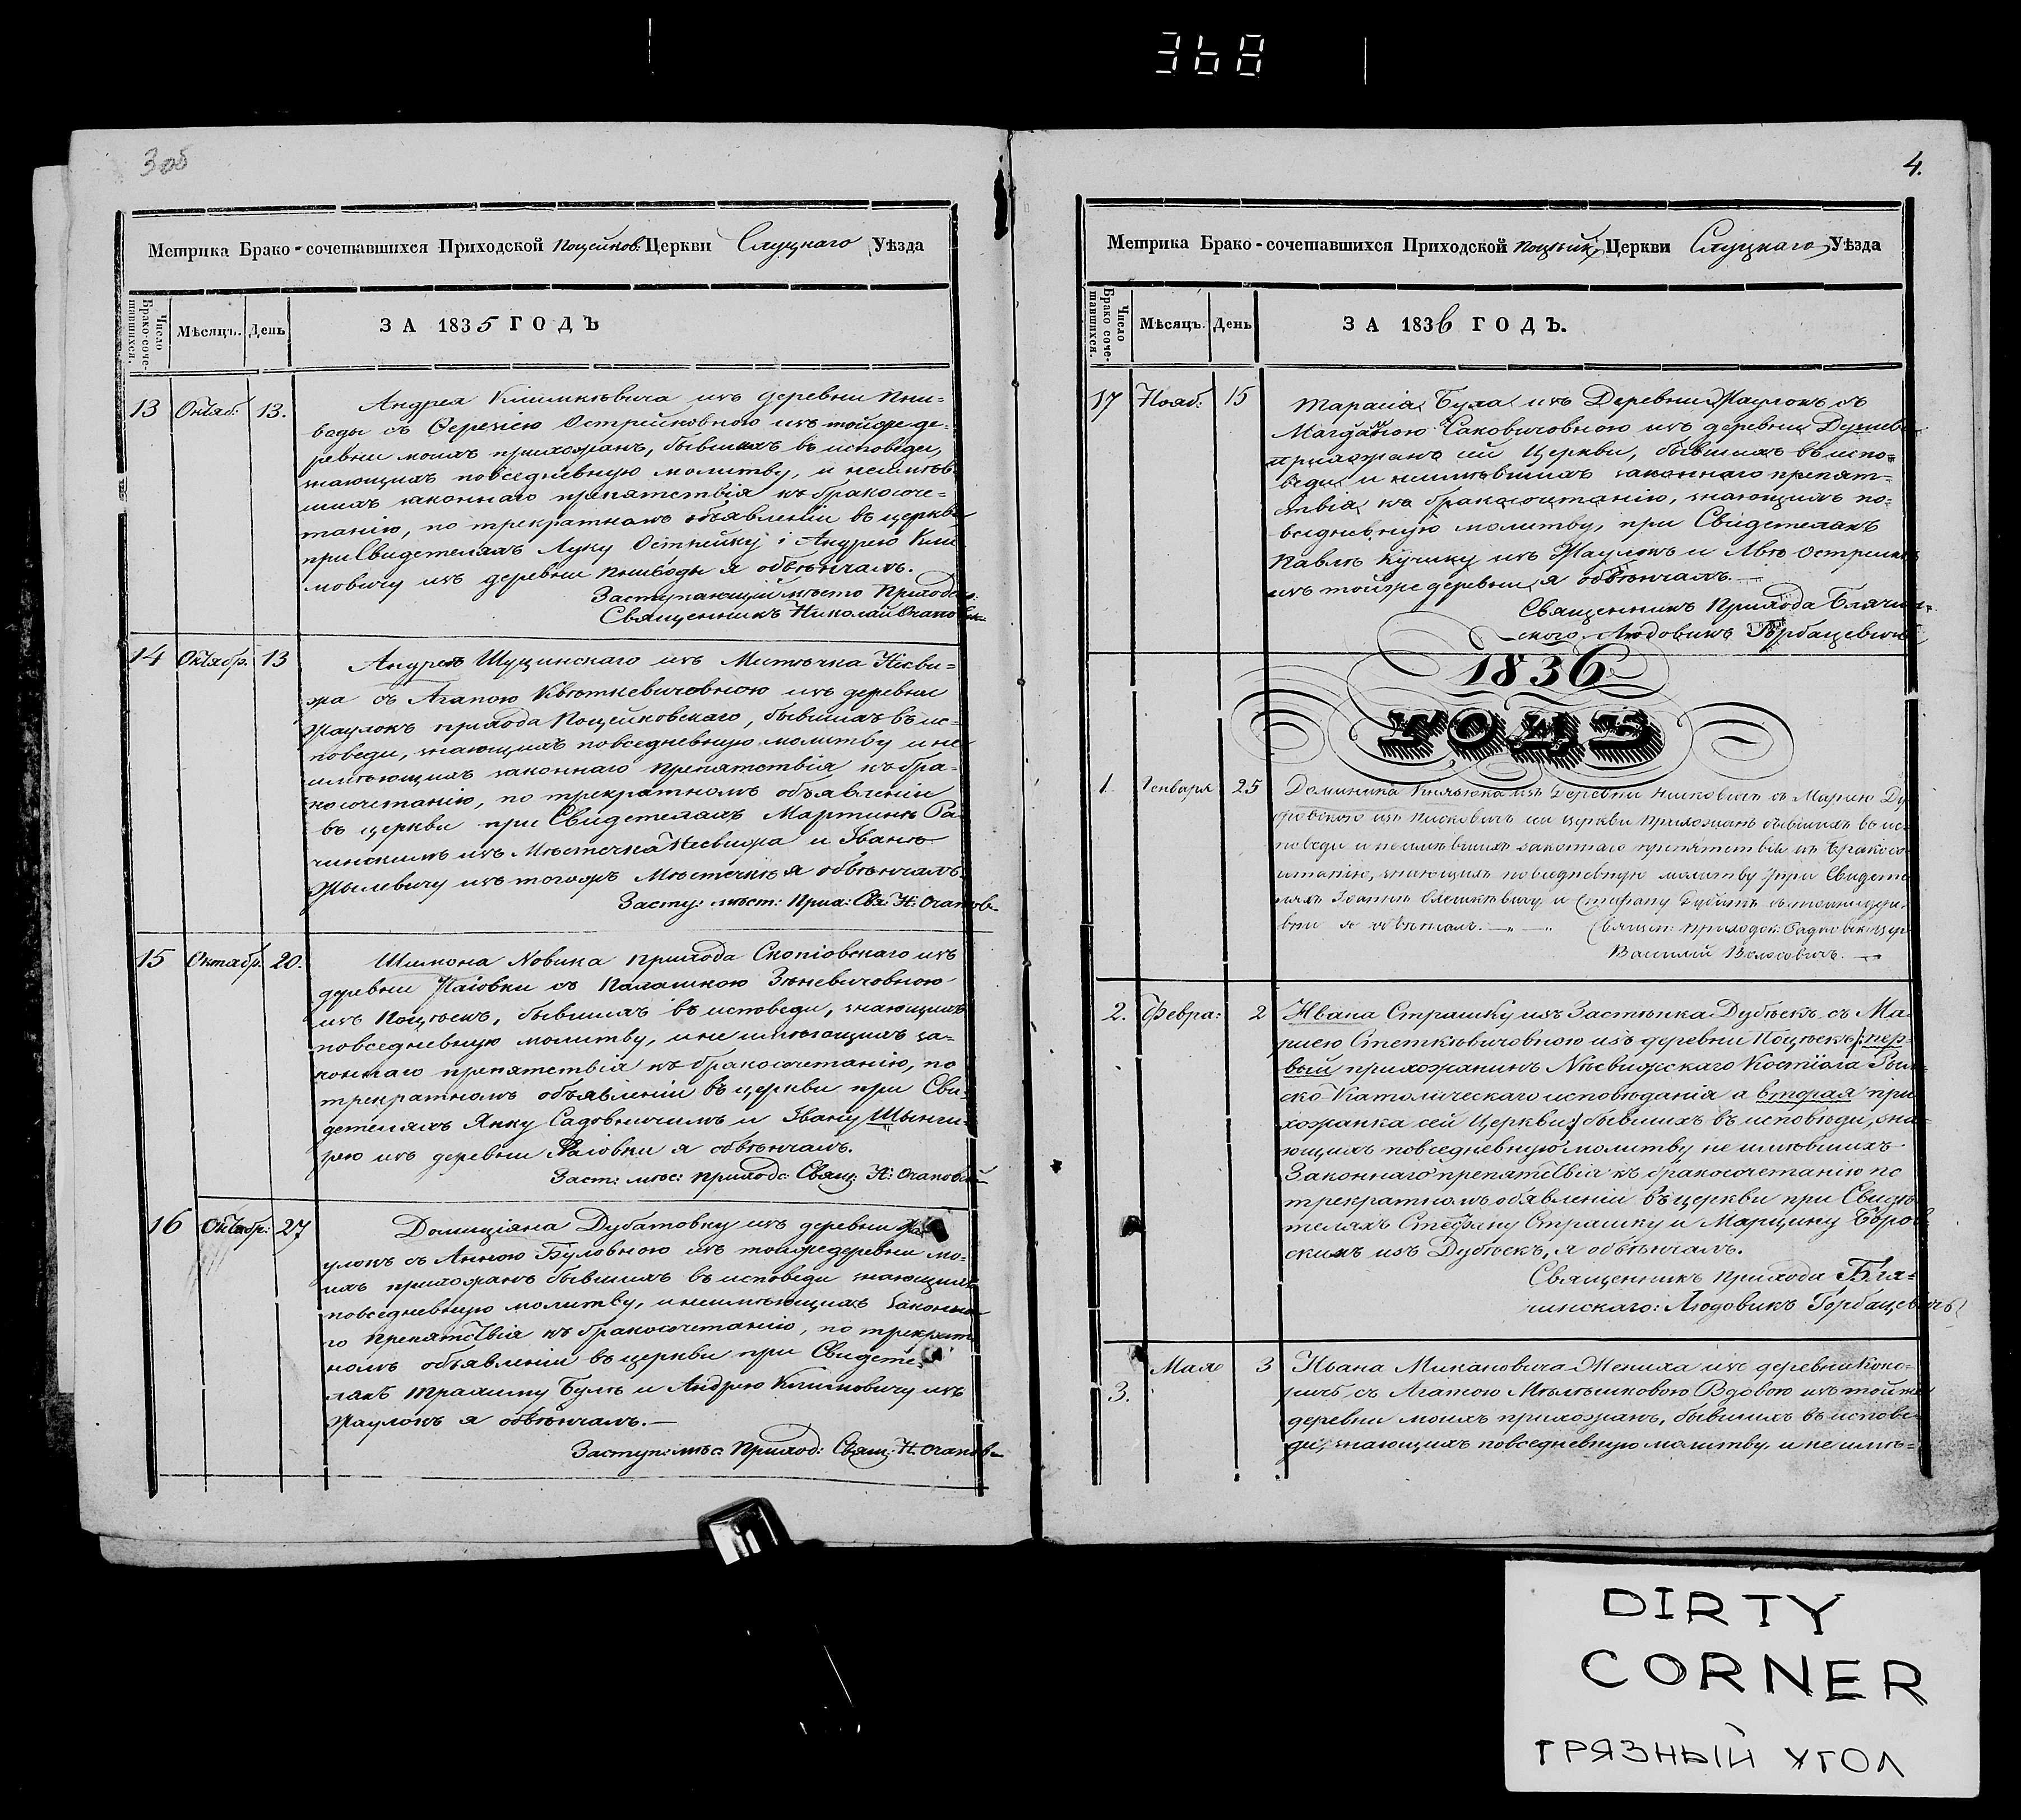 368
3 об
Метрика Брако-сочетавшихся Приходской Поцейков: Церкви Слуцкаго Уѣзда
Число Брако-соче-тавшихся.
Мѣсяцъ.
День
ЗА 1835 ГОДЪ
13 Октяб: 13.
Андрея Климковича изъ деревни
съ Острейковною изъ тойже де-
ревни моихъ прихожанъ, бывшихъ въ исповеди,
знающихъ повседневную молитву, и неимѣв-
шихъ законнаго препятствія къ бракосоче-
танію, по трекратномъ объявленіи въ церкви
при Свидетеляхъ Луку Острейку і Андрею Кли
мовичу изъ деревни я обвѣнчалъ.
Заступающій мѣсто Приходск:
Священникъ Николай
14 Октябр. 13
Андрея Щуцинскаго изъ Мѣстечка Несви-
жа съ Агапою Квѣткевичовною изъ деревни
Жаулокъ прихода Поцейковскаго, бывшихъ въ ис-
поведи, знающихъ повседневную молитву и не
имѣющихъ законнаго препятствія къ бра-
косочетанію, по трекратномъ объявленіи
въ церкви при Свидетеляхъ Мартинѣ Ра
чинскимъ изъ Мѣстечка Несвижа и Іванѣ
Жылевичу изъ тогожъ Мѣстечка я обвѣнчалъ.
Засту: мѣст: Прих: Свя: Н:
15 Октябр. 20.
Шимона Новика прихода Скопіовскаго изъ
деревни съ Палашкою Зѣневичовною
изъ Поцѣекъ, бывшихъ въ исповеди, знающихъ
повседневную молитву, и не имѣющихъ за-
коннаго препятствія къ бракосочетанію, по
трекратномъ объявленіи въ церкви при Сви-
детеляхъ Янку Садовничимъ и Івану
рею изъ деревни я обвѣнчалъ.
Заст: мѣс: приходс: Свящ: Н:
16 Октябр: 27
Домиціяна Дубатовку изъ деревни Жа
улокъ съ Анною Буловною изъ тойжедеревни мо-
ихъ прихожанъ бывшихъ въ исповеди знающихъ
повседневную молитву, и неимѣющихъ законна
го препятствія къ бракосочетанію, по трекрат
номъ объявленіи въ церкви при Свидете-
ляхъ Булѣ и Андрею Климовичу изъ
Жаулокъ я обвѣнчалъ.—
Заступ: мѣс: Приход: Свящ: Н:
4.
Метрика Брако-сочетавшихся Приходской Поцѣйк: Церкви Слуцкаго Уѣзда
Число Брако соче-тавшихся.
Мѣсяцъ.
День
ЗА 1836 ГОДЪ.
17 Нояб: 15
Тараса Була изъ Деревни Жаулокъ съ
Магдаліою Чаковичовною изъ деревни
прихожанъ сій Церкви, бывшихъ въ испо-
веди и неимѣвшихъ законнаго препят-
ствія къ бракосочетанію, знающихъ по-
вседневную молитву, при Свідетеляхъ
Павлѣ Кучику изъ Жаулокъ и
изъ тойже деревни, я обвѣнчалъ.—
Священникъ Прихода Блячин-
скаго. Людовикъ Горбацевичъ
1836
ГОДЪ
1. Генваря 25
Доминика изъ Деревни съ Марию Ду
изъ сій церкви Прихожанъ бывшихъ въ ис-
поведи и неимѣвшихъ законнаго препятствія къ бракосо
четанію, знающихъ повседневную молитву при Свидете
ляхъ и Стефану
вни я обвѣнчалъ.
Василій Волосовичъ.
2. Февра: 2
Ивана Страшку изъ Застѣнка Дубѣекъ съ Ма
риею Стеткѣвичовною изъ деревни Поцѣекъ/:пер-
вый прихожанинъ Нѣсвижскаго Костіола Рым
ско-Католическаго исповѣданія а вторая при
хожанка сей Церкви:/ бывшихъ въ исповѣди, зна-
ющихъ повседневную молитву не имѣвшихъ
Законнаго препятствія къ бракосочетанію по
трекратномъ обявленіи въ церкви при Свидѣ
теляхъ Стефану Страшку и Марцину Боров
скимъ изъ Дубѣекъ, я обвѣнчалъ.
Священникъ прихода Бля-
чинскаго: Людовикъ Горбацевичъ
3. Мая 3
Ивана Микановича Жениха изъ деревни Коко-
ричъ съ Агатою Вдовою изъ тойже
деревни моихъ прихожанъ, бывшихъ въ испове
ди, знающихъ повседневную молитву, и не имѣ-
DIRTY
CORNER
ГРЯЗНЫЙ УГОЛ